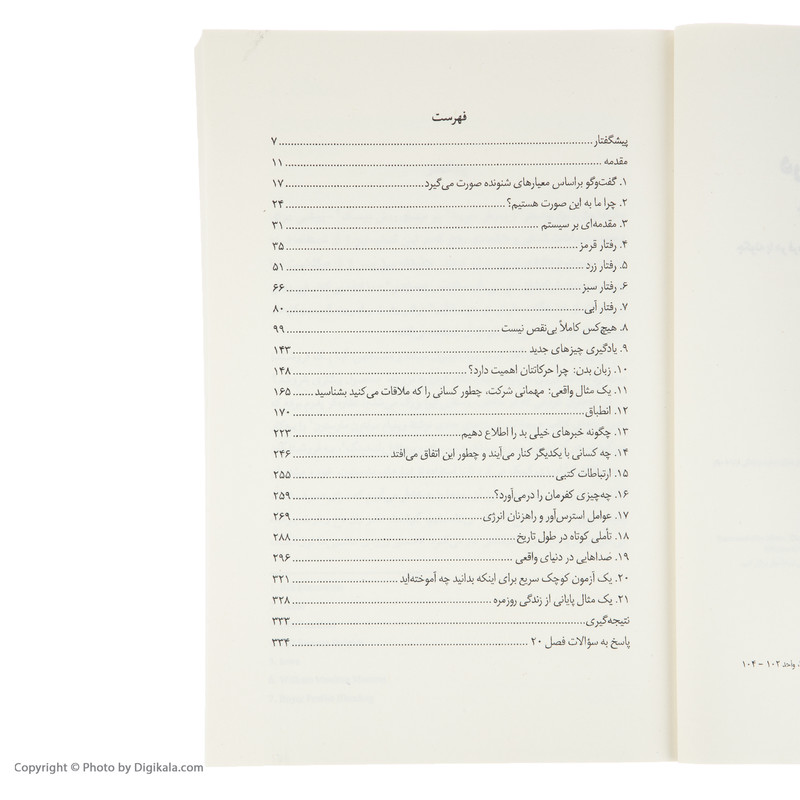 فهرست
پیشگفتار ........ ۷
مقدمه ........ ۱۱
۱. گفت‌وگو براساس معیارهای شنونده صورت می‌گیرد ........ ۱۷
۲. چرا ما به این صورت هستیم؟ ........ ۲۴
۳. مقدمه‌ای بر سیستم ........ ۳۱
۴. رفتار قرمز ........ ۳۵
۵. رفتار زرد ........ ۵۱
۶. رفتار سبز ........ ۶۶
۷. رفتار آبی ........ ۸۰
۸. هیچ‌کس کاملاً بی‌نقص نیست ........ ۹۹
۹. یادگیری چیزهای جدید ........ ۱۴۳
۱۰. زبان بدن: چرا حرکاتتان اهمیت دارد؟ ........ ۱۴۸
۱۱. یک مثال واقعی: مهمانی شرکت، چطور کسانی را که ملاقات می‌کنید بشناسید ....... ۱۶۵
۱۲. انطباق ........ ۱۷۰
۱۳. چگونه خبرهای خیلی بد را اطلاع دهیم ........ ۲۲۳
۱۴. چه کسانی با یکدیگر کنار می‌آیند و چطور این اتفاق می‌افتد ........ ۲۴۶
۱۵. ارتباطات کتبی ........ ۲۵۵
۱۶. چه‌چیزی کفرمان را درمی‌آورد؟ ........ ۲۵۹
۱۷. عوامل استرس‌آور و راهزنان انرژی ........ ۲۶۹
۱۸. تأملی کوتاه در طول تاریخ ........ ۲۸۸
۱۹. صداهایی در دنیای واقعی ........ ۲۹۶
۲۰. یک آزمون کوچک سریع برای اینکه بدانید چه آموخته‌اید ........ ۳۲۱
۲۱. یک مثال پایانی از زندگی روزمره ........ ۳۲۸
نتیجه‌گیری ........ ۳۳۳
پاسخ به سؤالات فصل ۲۰ ........ ۳۳۴
واحد ۱۰۲ – ۱۰۴
Copyright © Photo by Digikala.com